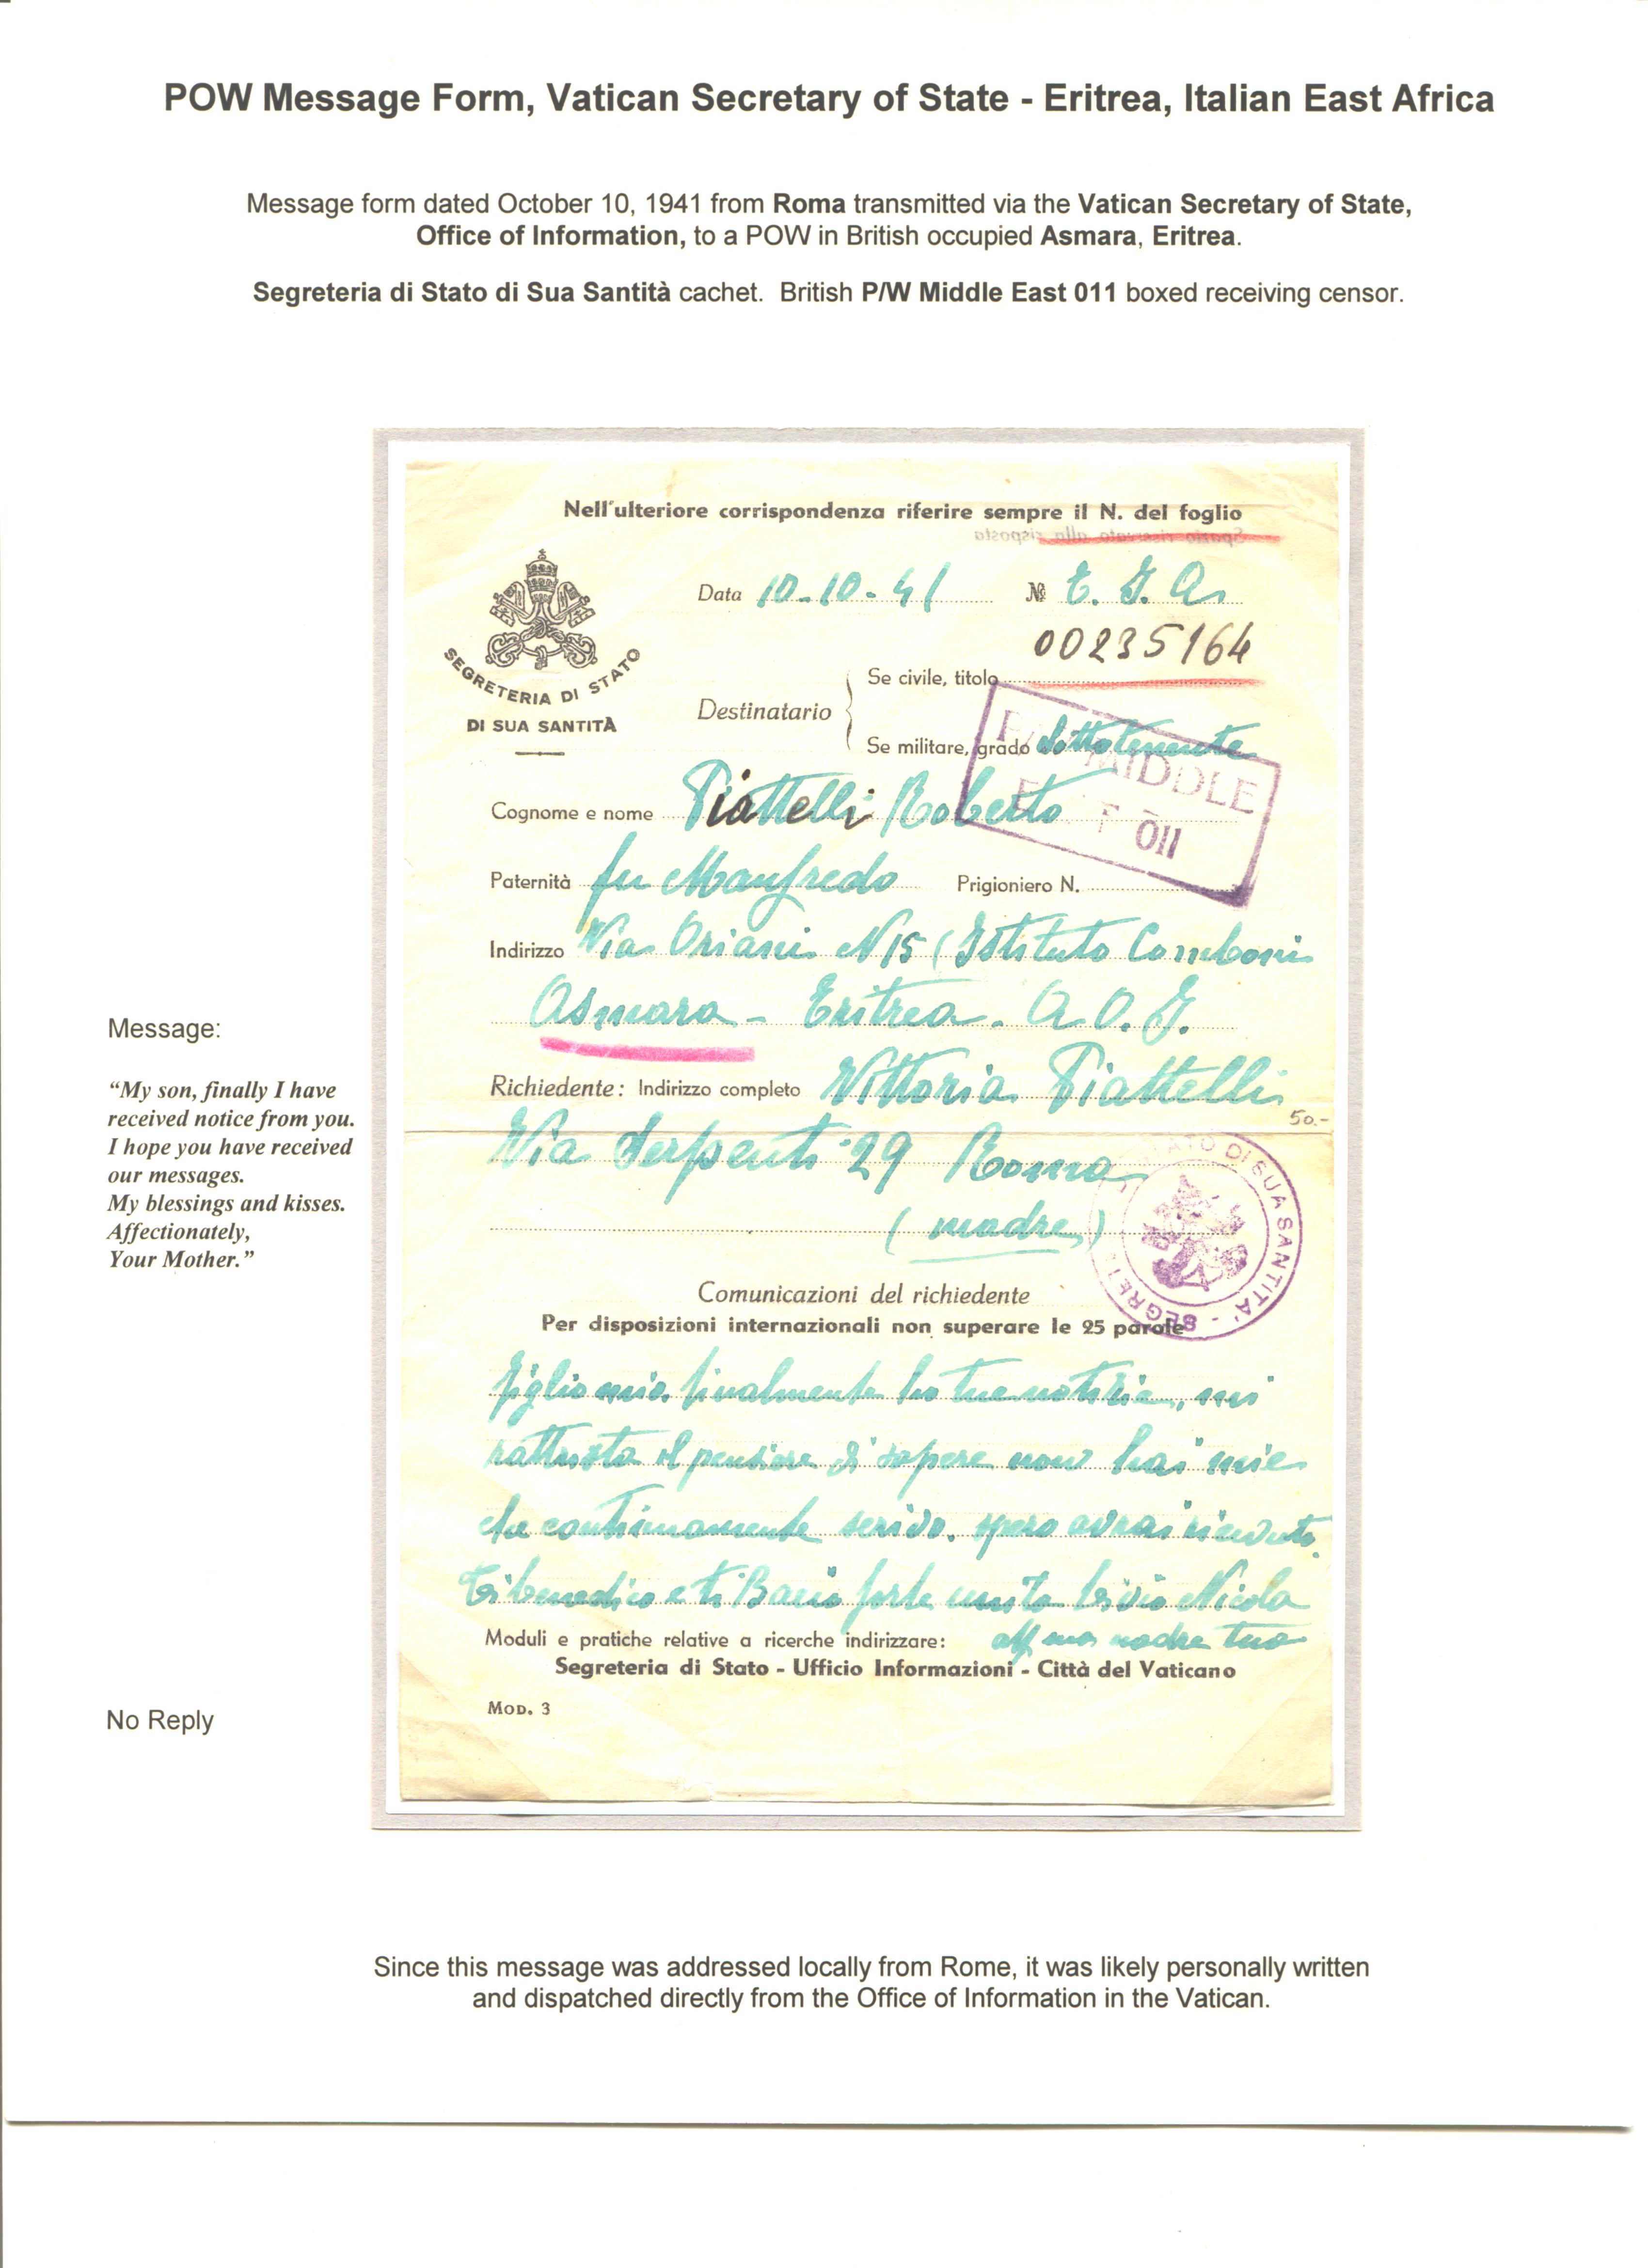 POW Message Form, Vatican Secretary of State - Eritrea, Italian East Africa
Message form dated October 10, 1941 from Roma transmitted via the Vatican Secretary of State,
Office of Information, to a POW in British occupied Asmara, Eritrea.
Segreteria di Stato di Sua Santità cachet. British P/W Middle East 011 boxed receiving censor.
Nell'ulteriore corrispondenza riferire sempre il N. del foglio
Spazio riservato alla risposta
Data 10-10-41 № E. J. A.
00235164
SEGRETERIA DI STATO
DI SUA SANTITÀ
Destinatario
Se civile, titolo
Se militare, grado Sottotenente
P/W MIDDLE
EAST 011
Cognome e nome Piattelli Roberto
Paternità fu Manfredo Prigioniero N.
Indirizzo Via Oriani N 15 (Istituto Comboni
Asmara - Eritrea. A.O.I.
Richiedente: Indirizzo completo Vittoria Piattelli
50.-
Via Serpenti 29 Roma
(madre)
SEGRETERIA DI STATO DI SUA SANTITA' -
Comunicazioni del richiedente
Per disposizioni internazionali non superare le 25 parole
figlio mio finalmente ho tue notizie, mi
rattrista il pensiero di sapere non hai mie
che continuamente scrivo. spero avrai ricevuto
Ti benedico e ti Bacio forte unita Livio Nicola
aff ma madre tua
Moduli e pratiche relative a ricerche indirizzare:
Segreteria di Stato - Ufficio Informazioni - Città del Vaticano
MOD. 3
Message:
“My son, finally I have
received notice from you.
I hope you have received
our messages.
My blessings and kisses.
Affectionately,
Your Mother.”
No Reply
Since this message was addressed locally from Rome, it was likely personally written
and dispatched directly from the Office of Information in the Vatican.